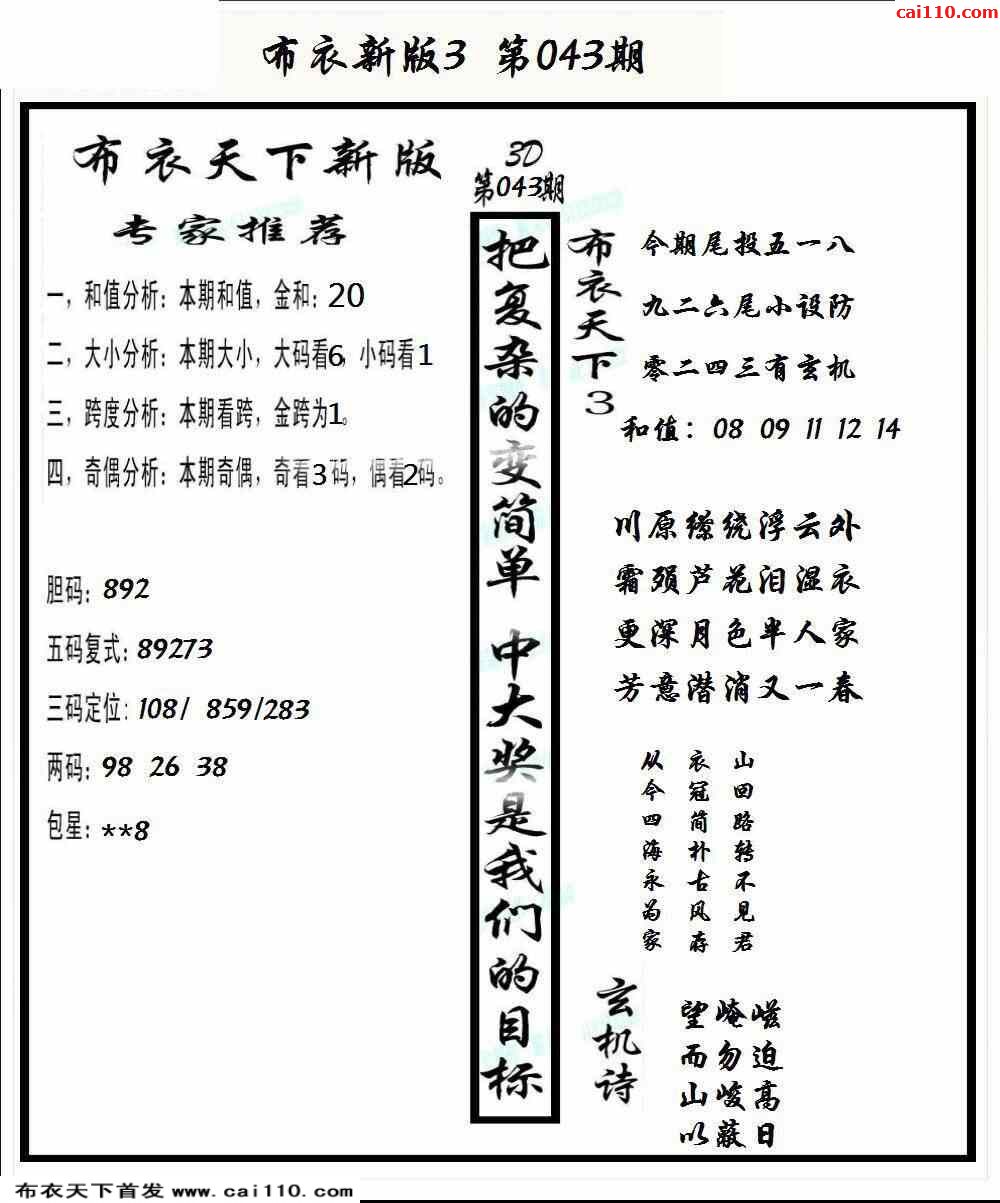 cai110.com
布衣新版3 第043期
布衣天下新版
专家推荐
一，和值分析：本期和值，金和：20
二，大小分析：本期大小，大码看6，小码看1
三，跨度分析：本期看跨，金跨为1。
四，奇偶分析：本期奇偶，奇看3码，偶看2码。
胆码：892
五码复式：89273
三码定位：108/ 859/283
两码：98 26 38
包星：**8
3D
第043期
把复杂的变简单 中大奖是我们的目标
布衣天下3
今期尾投五一八
九二六尾小设防
零二四三有玄机
和值：08 09 11 12 14
川原缭绕浮云外
霜殒芦花泪湿衣
更深月色半人家
芳意潜消又一春
山回路转不见君
衣冠简朴古风存
从今四海永为家
玄机诗
望崦嵫
而勿迫
山峻高
以蔽日
布衣天下首发 www.cai110.com